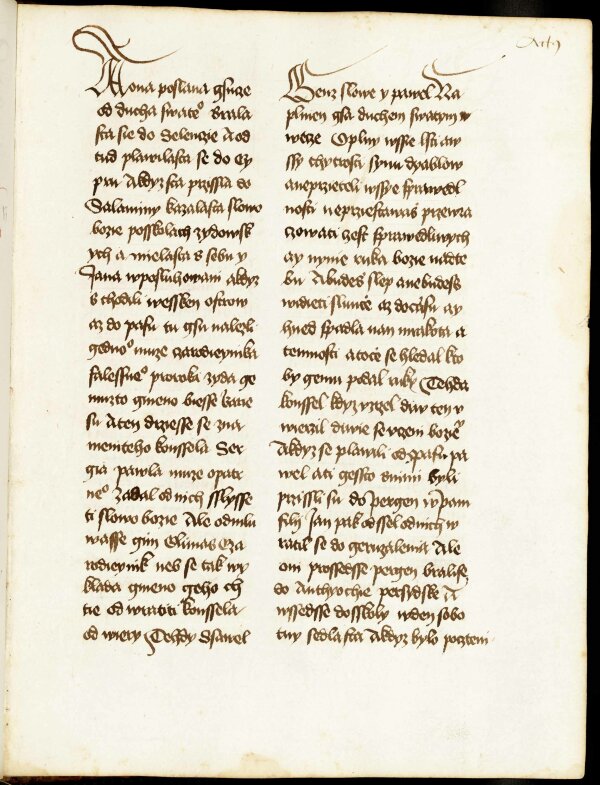 Actꝰ
A ona poslana gsuze
od ducha swateᵒ brala
sta sie do Seleucze A od
tud plawilasta se do Cy
pru Akdyz sta przissla do
Salaminy kazalasta slowo
bozie posskolach zydowsk
ych a mielasta s sebu y
Jana wposluhowani akdyz
schodali wessken ostrow
az do pafu tu gsu nalezli
gednoᵒ muze czarodieynika
falessneᵒ proroka zyda ge
muzto gmeno biesse barie
su Aten drziesse se zna
meniteho konssela Ser
gia pawla muze opatr
neᵒ zadal od nich sslysse
ti slowo bozie Ale odmlu
wasse gim Elimas Cza
rodieynik neb se tak wy
klada gmeno geho ch
tie od wratiti konssela
od wiery Tehdy Ssawel
Genz slowe y pawel Na
plnien gsa duchem swatym w
wecze O plny wssie lsti aw
ssy chytrosti synu dyablow
a neprzieteli wssye sprawedl
nosti neprziestawas przewra
czowati czest sprawedliwych
ay nynie ruka bozie nadte
bu A budes slep anebudess
widieti slunce az doczasu ay
hned spadla nan mrakota a
temnosti a tocie se hledal kto
by gemu podal ruky Tehda
konssel kdyz vzrzel diw ten v
wierzil diwie se vczeni bozieᵐ
Akdyz se plawili od pafu pa
wel ati gessto snimi byli
przissli su do pergen w pam
filij Jan pak odssel odnich w
ratil se do geruzalema Ale
oni prossedsse pergen bralise
do Anthyochie persydske A
wssedsse dosskoly wden sobo
tny sedlasta Akdyz bylo poczteni